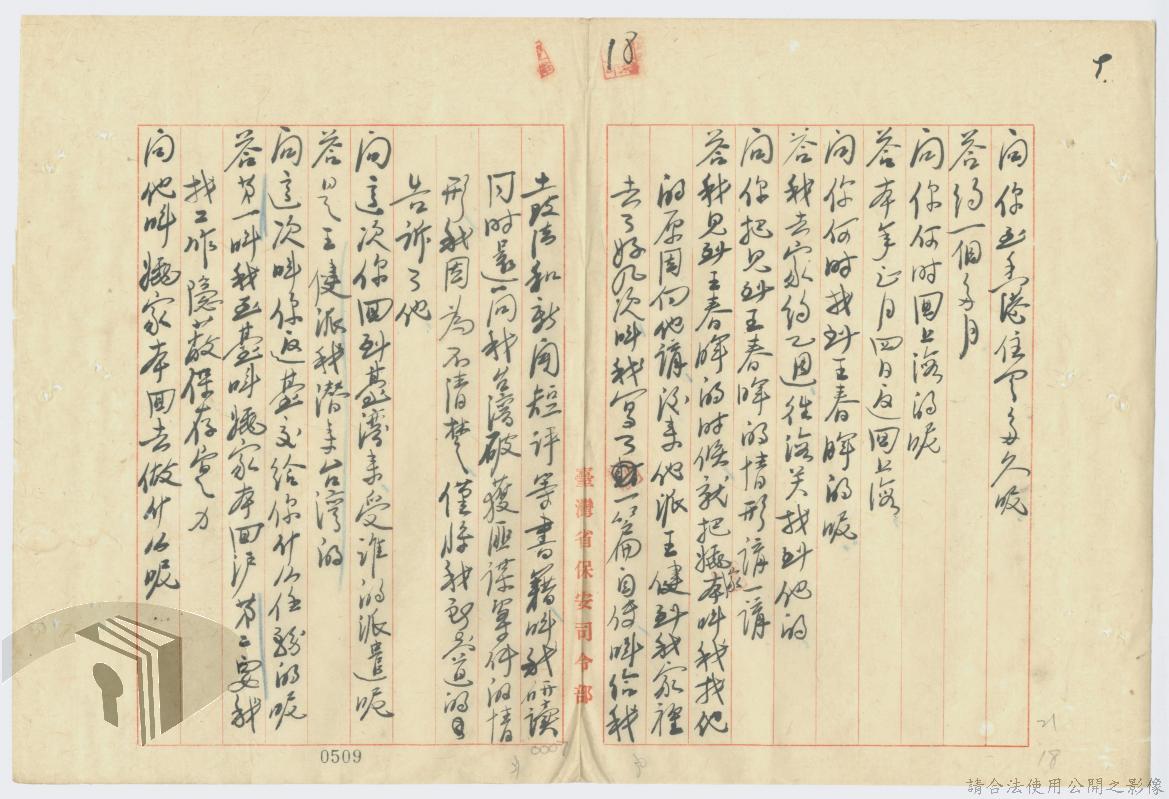 18
問你到香港住了多久呢
答約一個多月
問你何時回上海的呢
答本年正月四日返回上海
問你何時找到王春暉的呢
答我去家約乙週往海关找到他的
問你把見到王春暉的情形講一講
答我見到王春暉的时候就把姚家本叫我找他
的原因向他講後來他派王健到我家裡
去了好几次叫我寫了一篇自傳叫給我
臺灣省保安司令部
土改法和新聞短评等書籍叫我研读
同时還问我台湾破獲匪谍案件的情
形我因為不清楚僅將我所知道的
告訴了他
問這次你回到臺灣来受谁的派遣呢
答是王健派我潜来台湾的
問這次叫你返臺交給你什么任務的呢
答第一叫我到臺叫姚家本回沪第二要我
找工作隐蔽保存實力
問他叫姚家本回去做什么呢
0509
21
18
請合法使用公開之影像